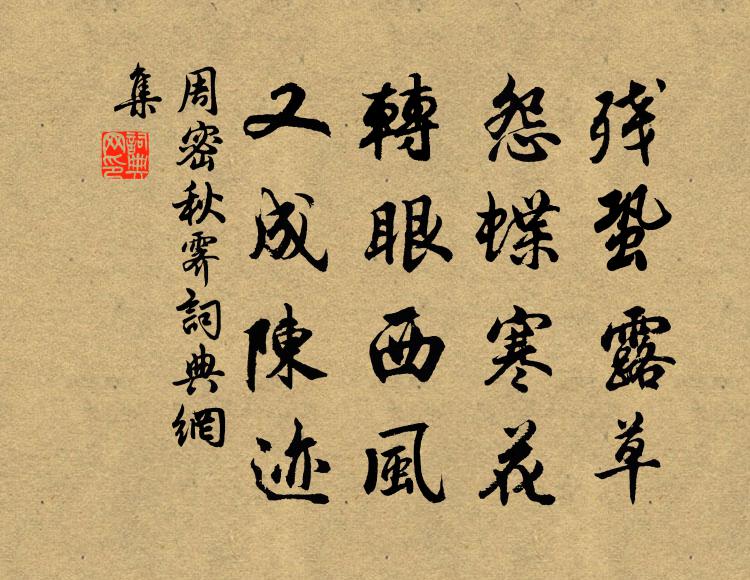 残蛩露草
怨蝶寒花
轉眼西風
又成陳迹
周密秋霽詞典網
集
詞典網印